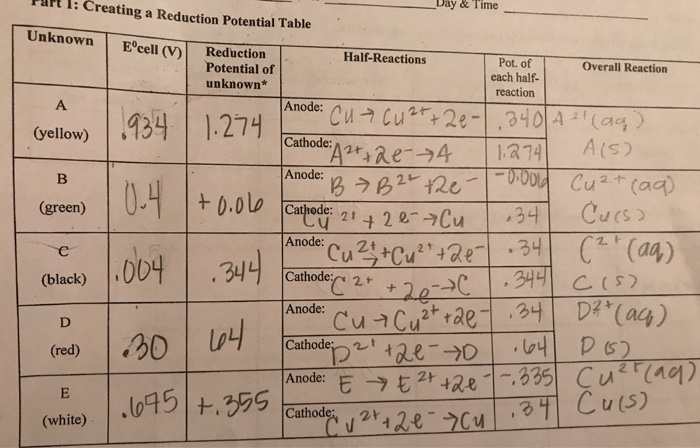 Part 1: Creating a Reduction Potential Table
Day & Time
Unknown
E⁰cell (V)
Reduction
Potential of
unknown*
Half-Reactions
Pot. of
each half-
reaction
Overall Reaction
A
(yellow)
.934
1.274
Anode: Cu → Cu²⁺ + 2e-
.340
A²⁺(aq)
Cathode: A²⁺ + 2e- → A
1.274
A(s)
B
(green)
0.4
+0.06
Anode: B → B²⁺ + 2e-
-0.006
Cu²⁺(aq)
Cathode: Cu²⁺ + 2e- → Cu
.34
Cu(s)
C
(black)
.004
.344
Anode: Cu²⁺ → Cu²⁺ + 2e-
.34
C²⁺(aq)
Cathode: C²⁺ + 2e- → C
.344
C(s)
D
(red)
.30
.64
Anode: Cu → Cu²⁺ + 2e-
.34
D²⁺(aq)
Cathode: D²⁺ + 2e- → D
.64
D(s)
E
(white)
.695
+.355
Anode: E → E²⁺ + 2e-
-.335
Cu²⁺(aq)
Cathode: Cu²⁺ + 2e- → Cu
.34
Cu(s)